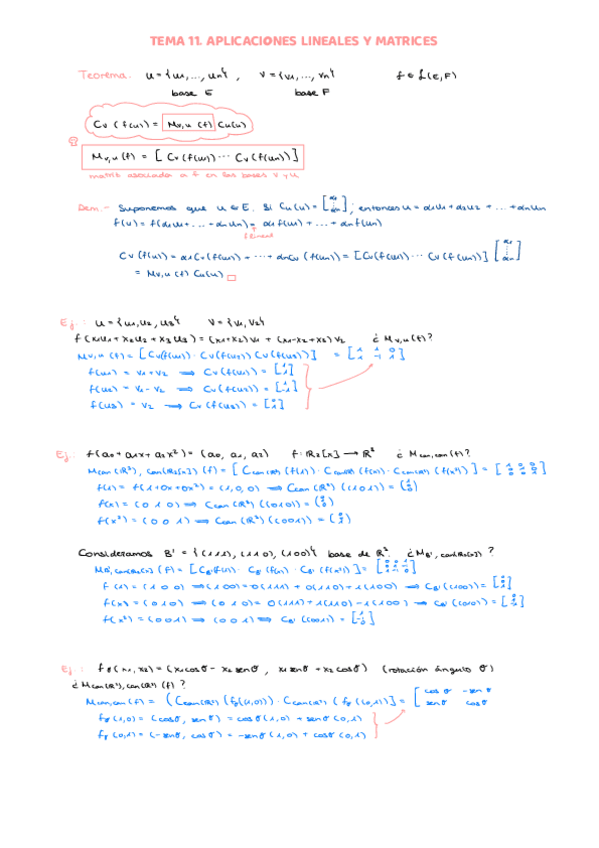 TEMA 11. APLICACIONES LINEALES Y MATRICES
Teorema. U = {u₁,..., uₙ}, V = {v₁, ..., vₙ} f ∈ L(E,F)
base E base F
Cv (f(u)) = Mv,u (f) Cu(u)
Mv,u (f) = [Cv (f(u₁)) ··· Cv (f(uₙ))]
matriz asociada a f en las bases V y U
Dem.- Suponemos que u ∈ E. Si Cu(u) = [α₁ ⋮ αₙ], entonces u = α₁u₁ + α₂u₂ + ... + αₙuₙ
f(u) = f(α₁u₁ + ... + αₙuₙ) = α₁f(u₁) + ... + αₙf(uₙ)
f lineal
Cv (f(u)) = α₁Cv(f(u₁)) + ··· + αₙCv (f(uₙ)) = [Cv(f(u₁)) ··· Cv (f(uₙ))] [α₁ ⋮ αₙ]
= Mv,u (f) Cu(u) □
Ej.: U = {u₁, u₂, u₃} V = {v₁, v₂}
f(x₁u₁ + x₂u₂ + x₃u₃) = (x₁+x₂)v₁ + (x₁-x₂+x₃)v₂ ¿Mv,u(f)?
Mv,u (f) = [Cv(f(u₁)) · Cv(f(u₂)) Cv(f(u₃))] = [1 1 0; 1 -1 1]
f(u₁) = v₁+v₂ ⟹ Cv(f(u₁)) = [1 1]
f(u₂) = v₁-v₂ ⟹ Cv(f(u₂)) = [1 -1]
f(u₃) = v₂ ⟹ Cv(f(u₃)) = [0 1]
Ej.: f(a₀ + a₁x + a₂x²) = (a₀, a₁, a₂) f: R₂[x] → R³ ¿Mcan,can(f)?
Mcan(R³), can(R₂[x]) (f) = [Ccan(R³) (f(1)) · Ccan(R³) (f(x)) · Ccan(R³) (f(x²))] = [1 0 0; 0 1 0; 0 0 1]
f(1) = f(1+0x+0x²) = (1,0,0) ⟹ Ccan(R³) ((1 0 0)) =
f(x) = (0 1 0) ⟹ Ccan(R³) ((0 1 0)) =
f(x²) = (0 0 1) ⟹ Ccan(R³) ((001)) =
Consideramos B' = {(111), (110), (100)} base de R³. ¿MB', can(R₂[x]) ?
MB', can(R₂[x]) (f) = [CB'(f(1)) · CB'(f(x)) · CB'(f(x²))] = [0 0 1; 0 1 -1; 1 -1 0]
f(1) = (1 0 0) ⟹ (100) = 0(111) + 0(110) + 1(100) ⟹ CB'((100)) =
f(x) = (010) ⟹ (010) = 0(111) + 1(110) - 1(100) ⟹ CB'((010)) =
f(x²) = (001) ⟹ (001) ⟹ CB'((001)) =
Ej.: fθ(x₁, x₂) = (x₁cosθ - x₂senθ, x₁senθ + x₂cosθ) (rotación ángulo θ)
¿Mcan(R²),can(R²) (f)?
Mcan,can(f) = (Ccan(R²) (fθ(1,0)) · Ccan(R²) (fθ(0,1))] = [cosθ -senθ; senθ cosθ]
fθ(1,0) = (cosθ, senθ) = cosθ(1,0) + senθ(0,1)
fθ(0,1) = (-senθ, cosθ) = -senθ(1,0) + cosθ(0,1)